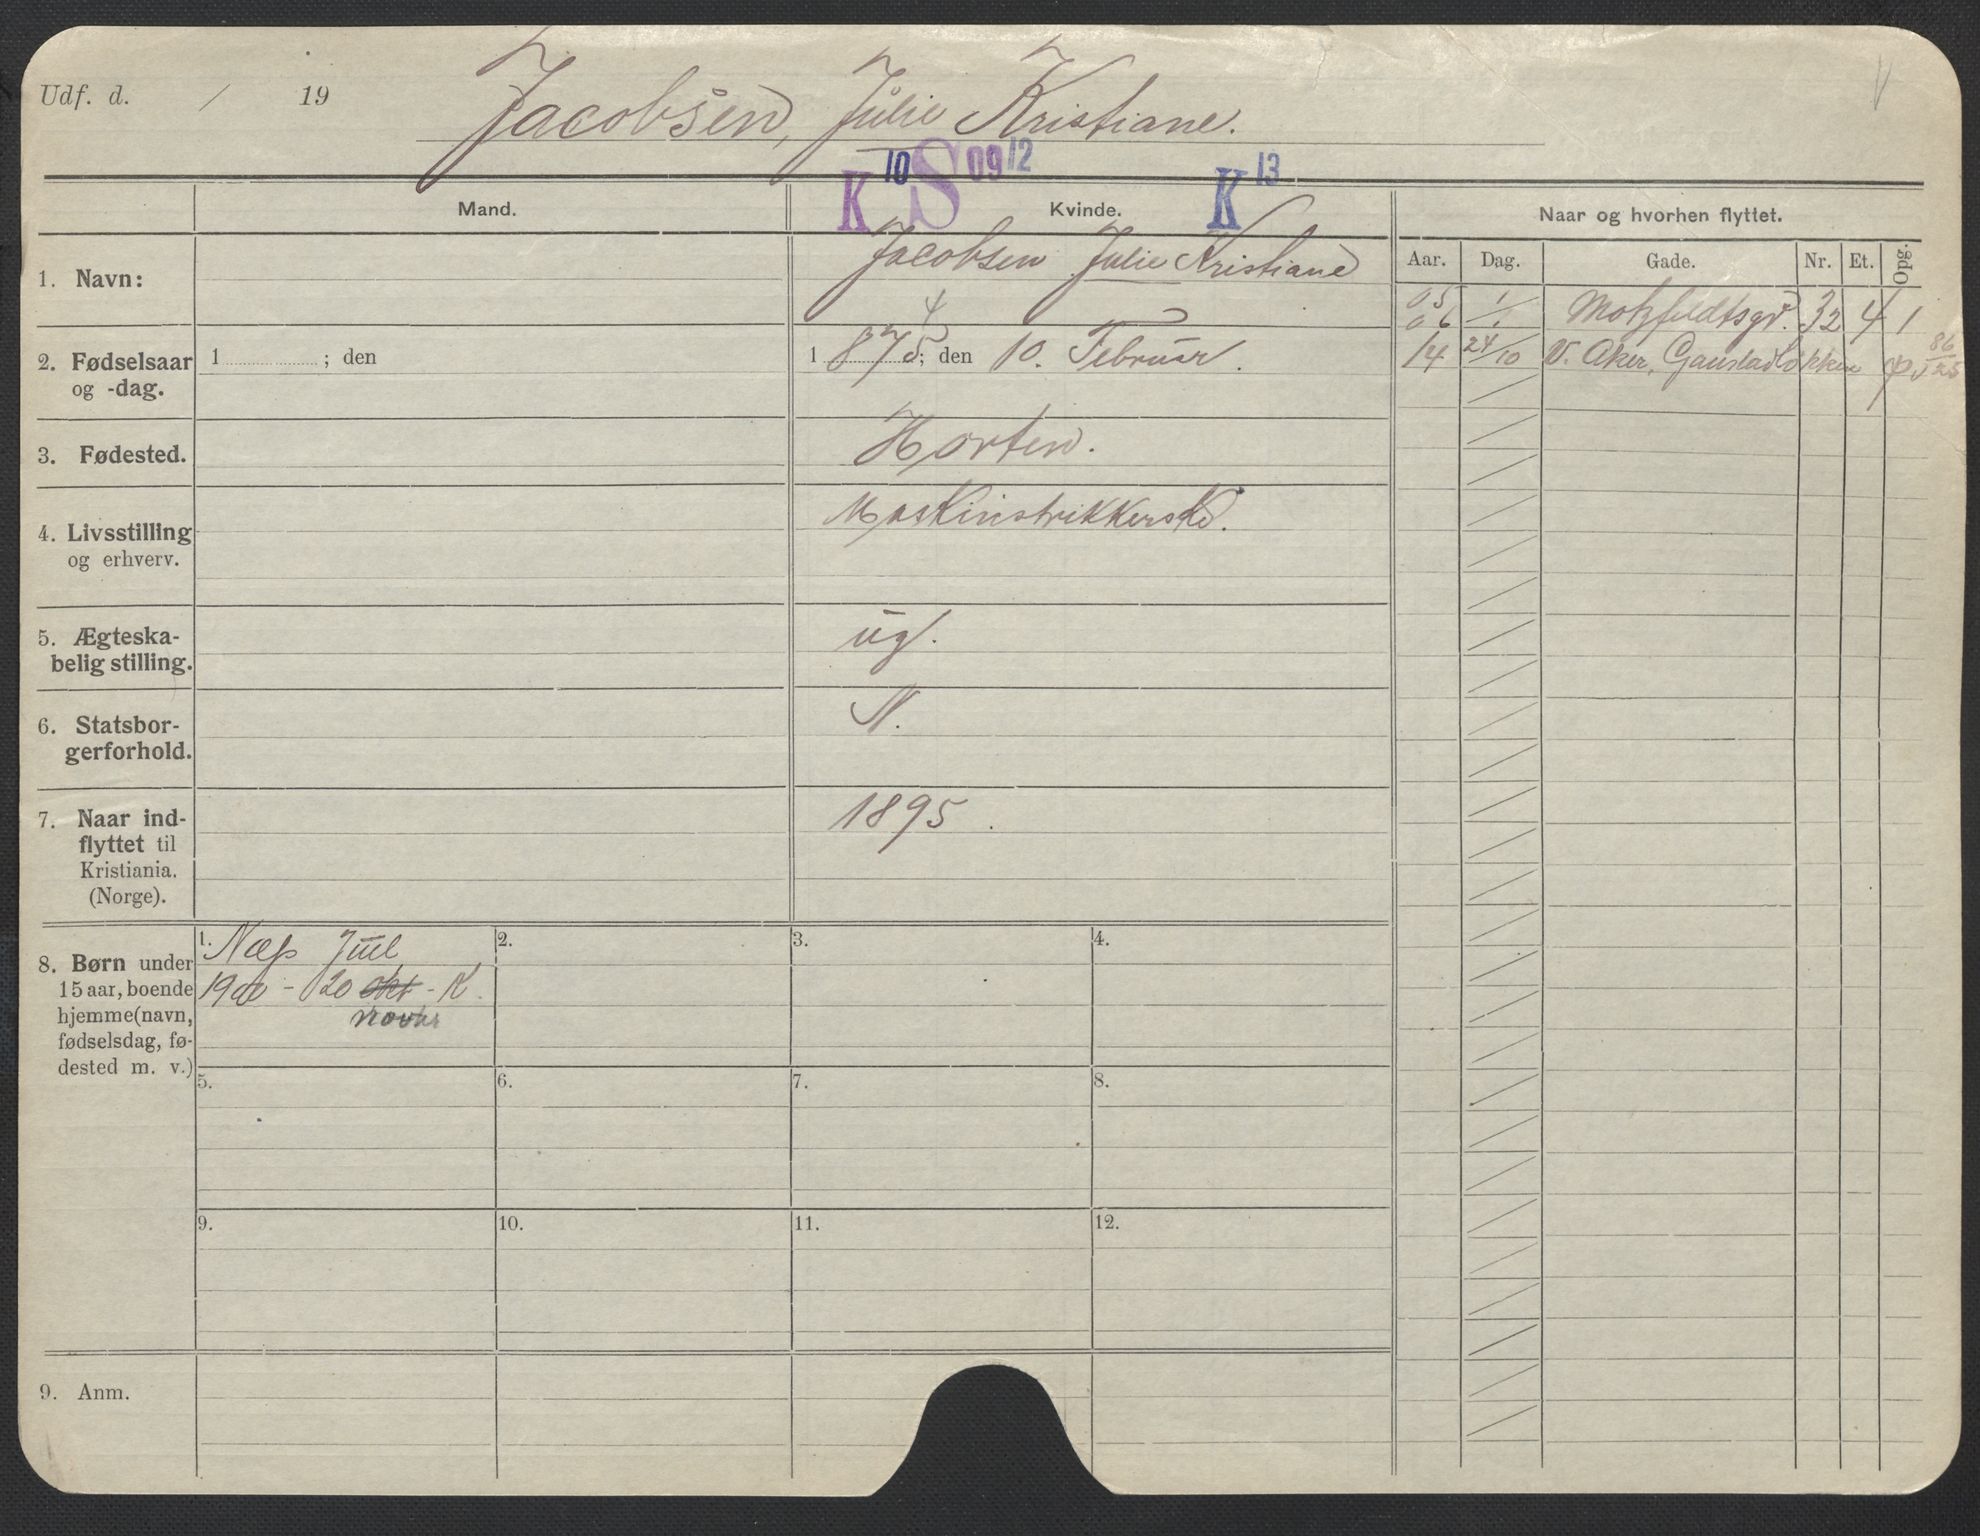 Udf. d. / 19
Jacobsen, Julie Kristiane.
K 10 S 09 12 K 13
Mand. Kvinde. Naar og hvorhen flyttet.
Aar. Dag. Gade. Nr. Et. Opg.
1. Navn: Jacobsen Julie Kristiane
05 1/1 Motzfeldtsgt. 32 4 1
06
2. Fødselsaar og -dag.
1 ; den
4
1 875; den 10. Februar.
14 24/10 V. Aker, Gaustadløkken 86
3. Fødested. Horten.
4. Livsstilling og erhverv. Maskinstrikkerske.
5. Ægteska-
belig stilling. ug.
6. Statsbor-
gerforhold. N.
7. Naar ind-
flyttet til
Kristiania.
(Norge).
1895.
8. Børn under
15 aar, boende
hjemme (navn,
fødselsdag, fø-
dested m. v.)
1. Næss Juel 2. 3. 4.
1900 - 20 okt - K.
novbr
5. 6. 7. 8.
9. 10. 11. 12.
9. Anm.